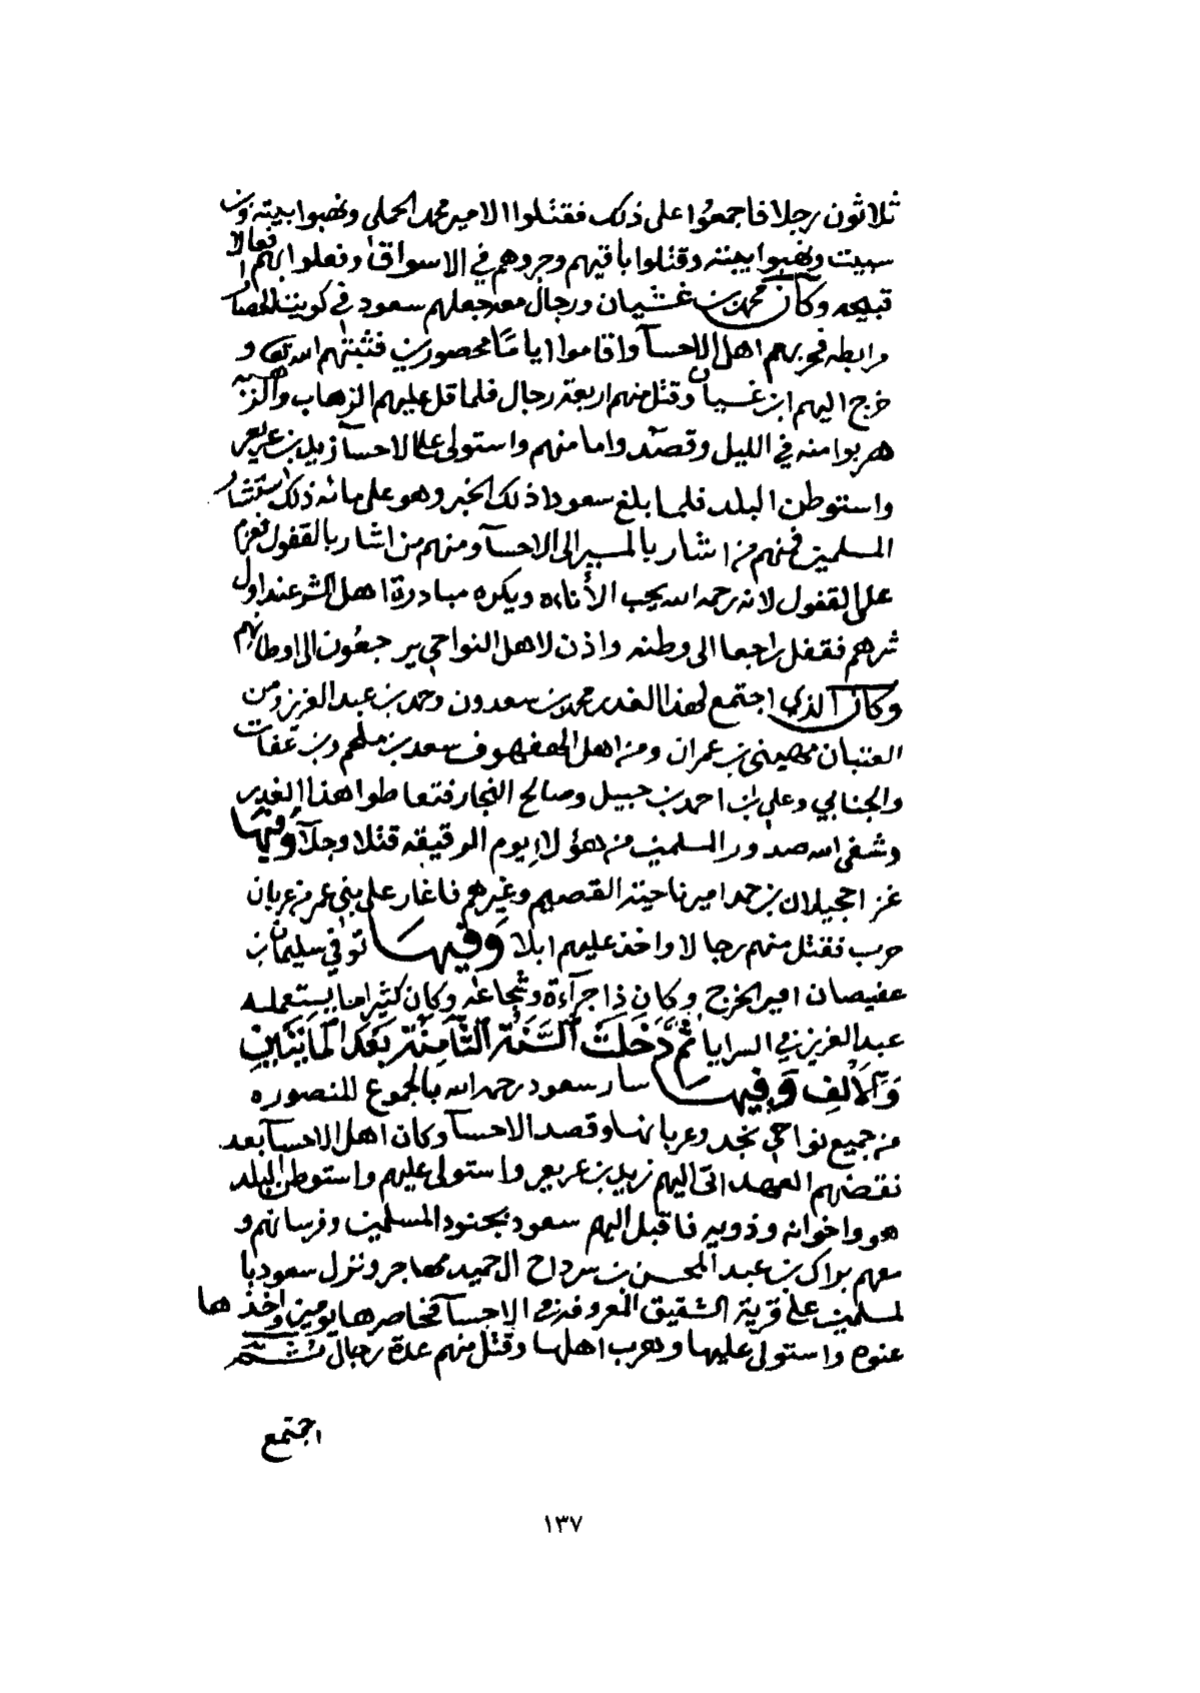 ثلاثون رجلا فاجمعوا على ذلك فقتلوا الامير محمد الحملي ونهبوا بيته وان
سبيت ونهبوا بيته وقتلوا باقيهم وجروهم في الاسواق وفعلوا بهم افعالا
قبيحه وكان محمد بن غشيان ورجال معه جعلهم سعود في كويت الحصار
مرابطه فحربهم اهل الاحسا واقاموا اياما محصورين فثبتهم الله تعالى و
خرج اليهم ابن غسيان وقتل منهم اربعة رجال فلما قل عليهم الزهاب والزهبه
هربوا منه في الليل وقصدوا مامنهم واستولى على الاحسا زيد بن عريعر
واستوطن البلد فلما بلغ سعودا ذلك الخبر وهو على مائه ذلك استشار
المسلمين فمنهم من اشار بالمسير الى الاحسا ومنهم من اشار بالقفول فعزم
على القفول لانه رحمه الله يحب الأناءه ويكره مبادرة اهل الشر عند اول
شرهم فقفل راجعا الى وطنه واذن لاهل النواحي يرجعون الى اوطانهم
وكان الذي اجتمع لهذا الغدر محمد بن سعدون وحمد بن عبد العزيز ومن
العتبان مهيني بن عمران ومن اهل الهفهوف سعد بن ملحم وبن عفات
والجنابي وعلي بن احمد بن حبيل وصالح النجار فتعاطوا هذا الغدر
وشفى الله صدور المسلمين من هؤلاء يوم الرقيقه قتلا وجلآ وفيها
غزا حجيلان بن حمد امير ناحية القصيم وغيرهم فاغار على بني عمر من عربان
حرب فقتل منهم رجالا واخذ عليهم ابلا وفيها توفي سليمان بن
عفيصان امير الخرج وكان ذا جرآءة وشجاعه وكان كثيرا ما يستعمله
عبد العزيز في السرايا ثم دخلت السنة الثامنة بعد المائتين
والالف وفيها سار سعود رحمه الله بالجموع المنصوره
من جميع نواحي نجد وعربانها وقصد الاحسا وكان اهل الاحسا بعد
نقضهم العهد اتى اليهم زيد بن عريعر واستولى عليهم واستوطن البلد
هو واخوانه وذويه فاقبل اليهم سعود بجنود المسلمين وفرسانهم و
معهم براك بن عبد المحسن بن سرداح ال حميد مهاجر ونزل سعود با
لمسلمين على قرية الشقيق المعروفة في الاحسا فحاصرها يومين واخذها
عنوه واستولى عليها وهرب اهلها وقتل منهم عدة رجال ثم
اجتمع
١٣٧